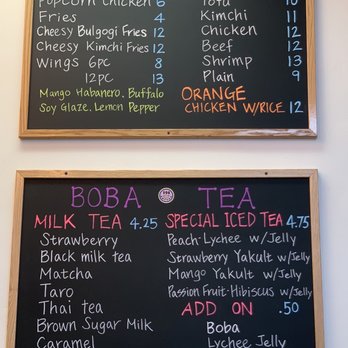 Popcorn Chicken 6
Fries 4
Cheesy Bulgogi Fries 12
Cheesy Kimchi Fries 12
Wings 6pc 8
12pc 13
Mango Habanero, Buffalo
Soy Glaze, Lemon Pepper
Tofu 10
Kimchi 11
Chicken 12
Beef 12
Shrimp 13
Plain 9
ORANGE
CHICKEN W/RICE 12
BOBA TEA
MILK TEA 4.25
Strawberry
Black milk tea
Matcha
Taro
Thai tea
Brown Sugar Milk
Caramel
SPECIAL ICED TEA 4.75
Peach-Lychee w/Jelly
Strawberry Yakult w/Jelly
Mango Yakult w/Jelly
Passion Fruit-Hibiscus w/Jelly
ADD ON .50
Boba
Lychee Jelly